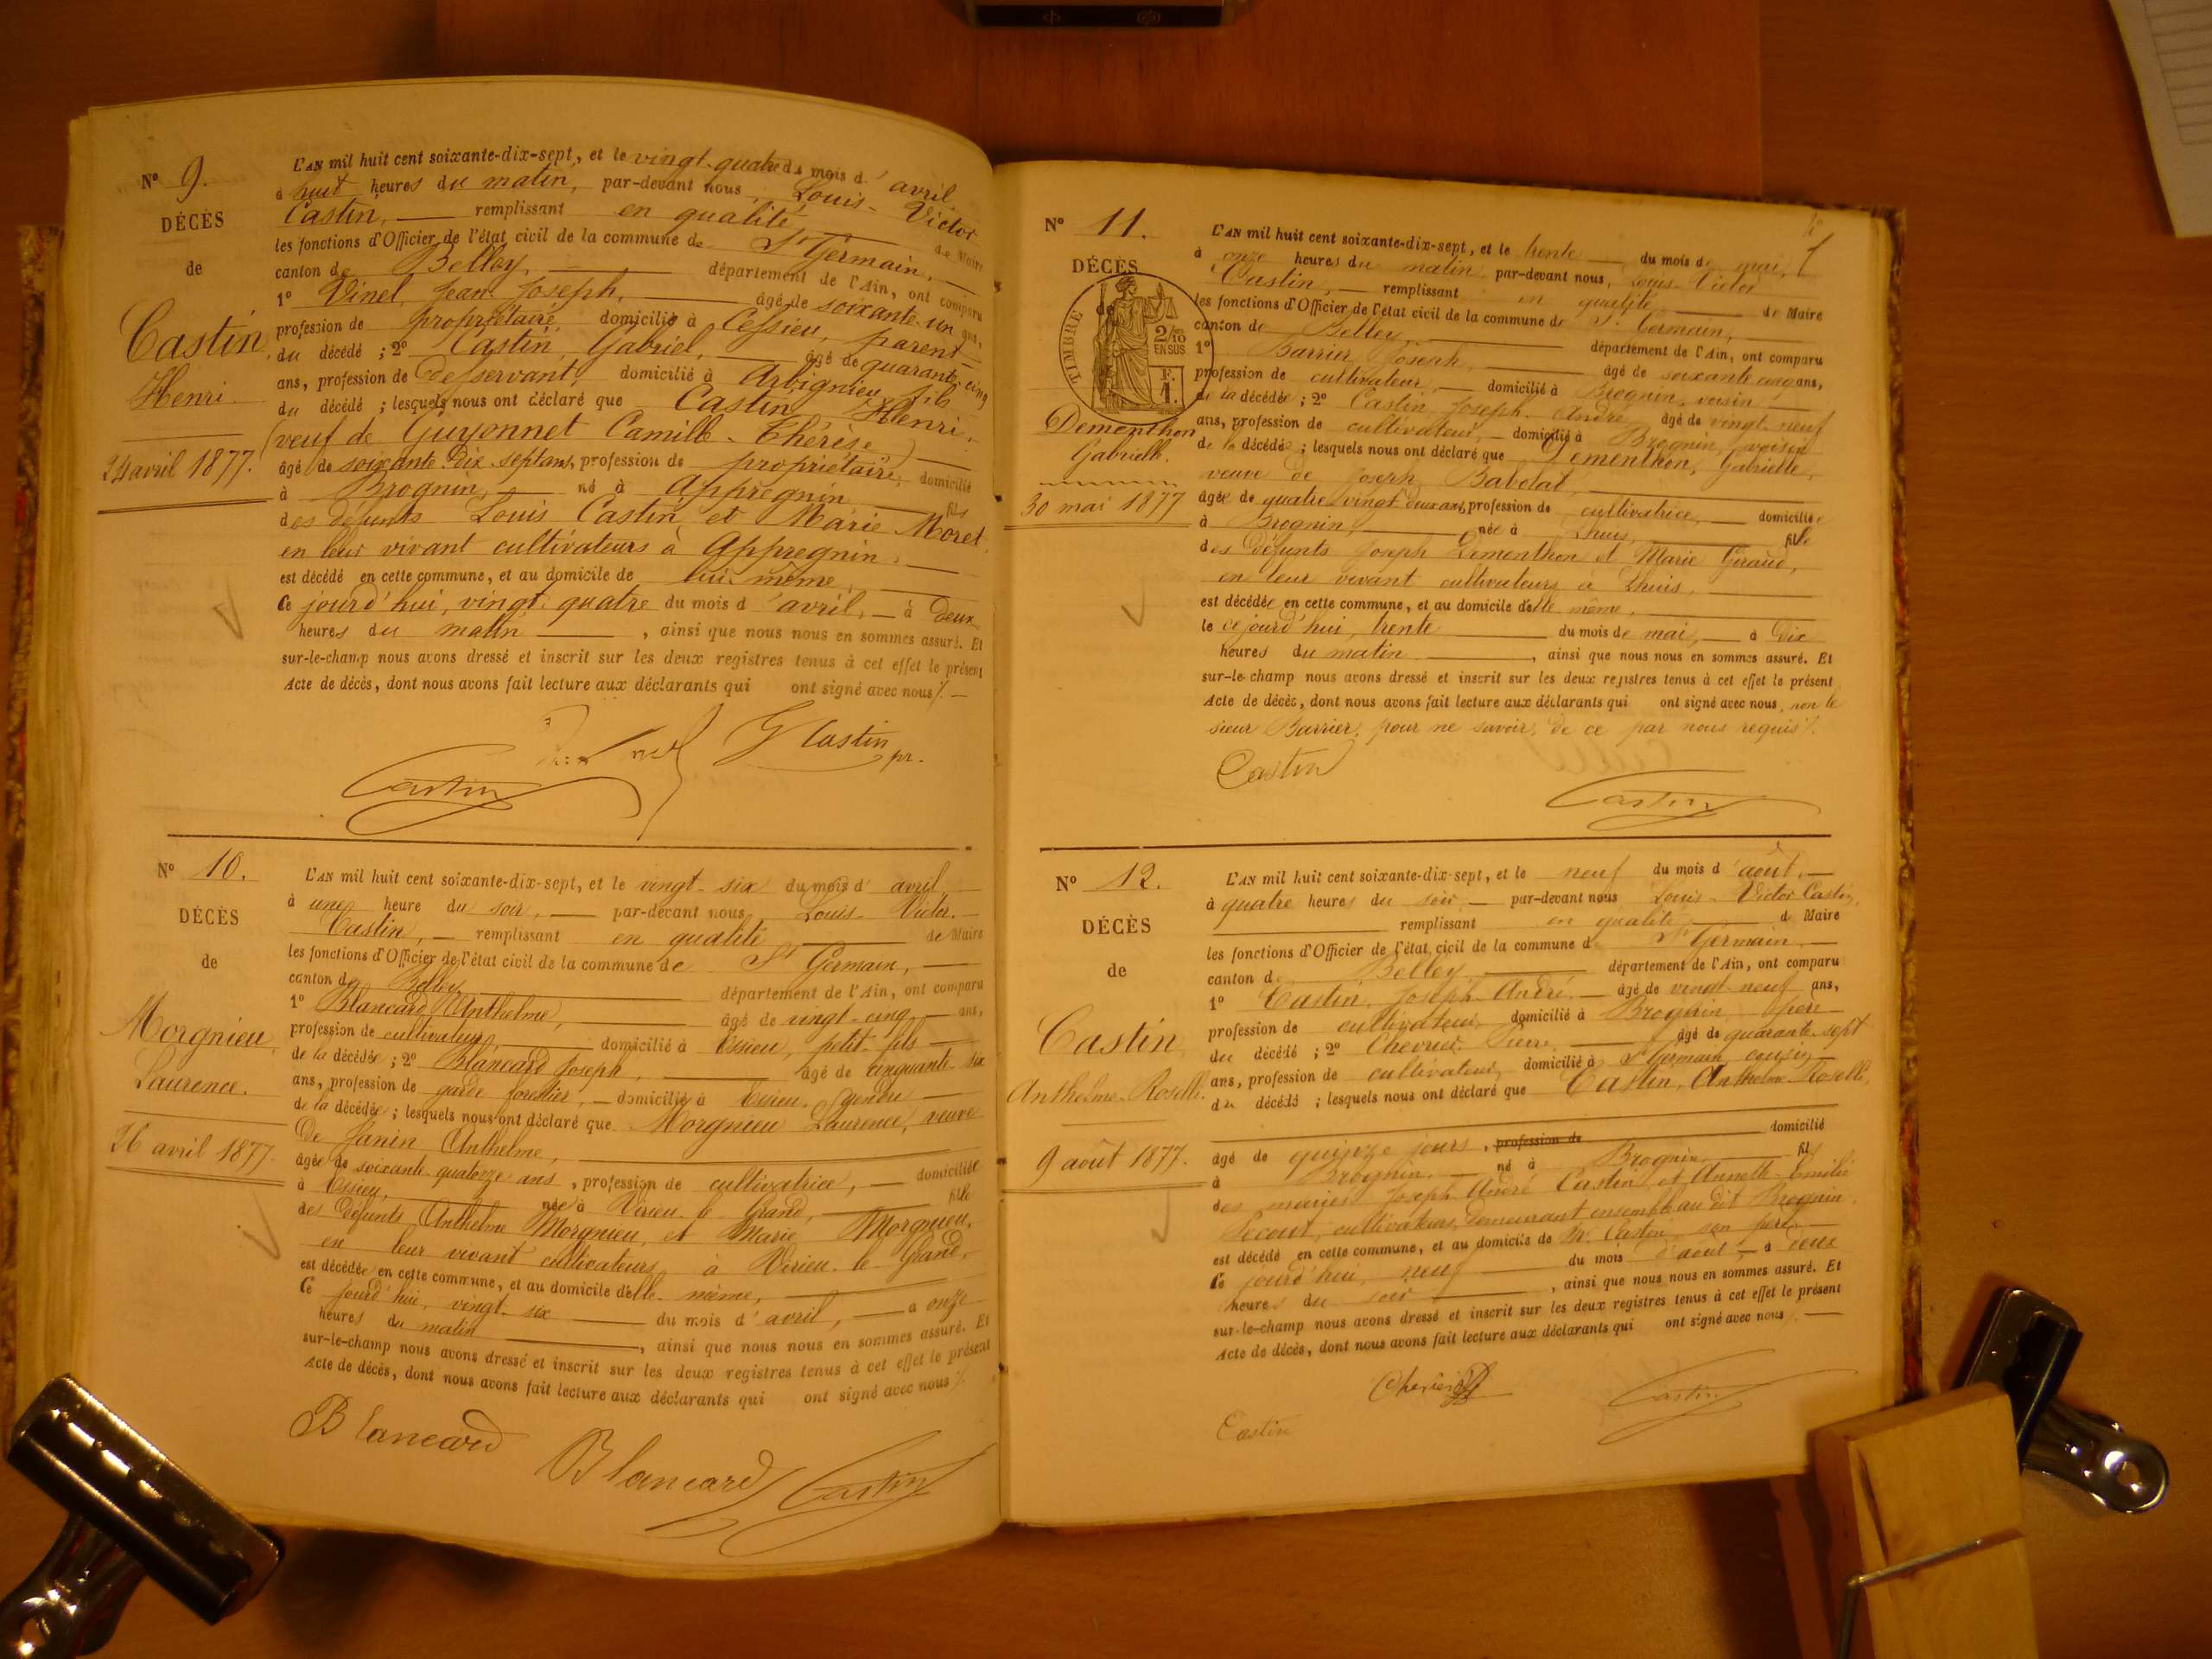 Nº 9.
DÉCÈS
de
Castin
Henri
24 avril 1877.
L'AN mil huit cent soixante-dix-sept, et le vingt-quatre du mois d'avril
à huit heures du matin, par-devant nous, Louis-Victor
Castin, remplissant en qualité de Maire
les fonctions d'Officier de l'état civil de la commune de St Germain,
canton de Belley, département de l'Ain, ont comparu
1º Vinel, Jean Joseph, âgé de soixante-un ans,
profession de propriétaire, domicilié à Cessieu, parent
du décédé ; 2º Castin, Gabriel, âgé de quarante-cinq
ans, profession de desservant, domicilié à Arbignieu, fils
du décédé ; lesquels nous ont déclaré que Castin, Henri,
(veuf de Guyonnet Camille-Thérèse)
âgé de soixante dix-sept ans, profession de propriétaire, domicilié
à Brognin, né à Appregnin, fils
des défunts Louis Castin et Marie Moret
en leur vivant cultivateurs à Appregnin.
est décédé en cette commune, et au domicile de lui-même,
Ce jourd'hui, vingt-quatre du mois d'avril, à deux
heures du matin, ainsi que nous nous en sommes assuré. Et
sur-le-champ nous avons dressé et inscrit sur les deux registres tenus à cet effet le présent
Acte de décès, dont nous avons fait lecture aux déclarants qui ont signé avec nous.
G Castin pr.
Castin
Nº 10.
DÉCÈS
de
Morgnieu,
Laurence.
26 avril 1877.
L'AN mil huit cent soixante-dix-sept, et le vingt-six du mois d'avril,
à une heure du soir, par-devant nous, Louis-Victor
Castin, remplissant en qualité de Maire
les fonctions d'Officier de l'état civil de la commune de St Germain,
canton de Belley, département de l'Ain, ont comparu
1º Blancard Anthelme, âgé de vingt-cinq ans,
profession de cultivateur, domicilié à Essieu, petit-fils
de la décédée ; 2º Blancard Joseph, âgé de cinquante-six
ans, profession de garde forestier, domicilié à Essieu, gendre
de la décédée ; lesquels nous ont déclaré que Morgnieu Laurence, veuve
de Janin Anthelme,
âgée de soixante-quatorze ans, profession de cultivatrice, domiciliée
à Essieu, née à Virieu-le-Grand, fille
des défunts Anthelme Morgnieu, et Marie Morgnieu,
en leur vivant cultivateurs à Virieu-le-Grand,
est décédée en cette commune, et au domicile d'elle-même,
Ce jourd'hui, vingt-six du mois d'avril, à onze
heures du matin, ainsi que nous nous en sommes assuré. Et
sur-le-champ nous avons dressé et inscrit sur les deux registres tenus à cet effet le présent
Acte de décès, dont nous avons fait lecture aux déclarants qui ont signé avec nous.
Blancard
Blancard
Castin
Nº 11.
DÉCÈS
de
TIMBRE
2/10
EN SUS
F.
1.
Dementhon
Gabrielle.
30 mai 1877
L'AN mil huit cent soixante-dix-sept, et le trente du mois de mai,
à onze heures du matin, par-devant nous, Louis-Victor
Castin, remplissant en qualité de Maire
les fonctions d'Officier de l'état civil de la commune de St Germain,
canton de Belley, département de l'Ain, ont comparu
1º Barrier Joseph, âgé de soixante cinq ans,
profession de cultivateur, domicilié à Brognin, voisin
de la décédée ; 2º Castin Joseph-André, âgé de vingt-neuf
ans, profession de cultivateur, domicilié à Brognin, voisin
de la décédée ; lesquels nous ont déclaré que Dementhon, Gabrielle,
veuve de Joseph Babolat,
âgée de quatre-vingt deux ans, profession de cultivatrice, domiciliée
à Brognin, née à Lhuis, fille
des défunts Joseph Dementhon et Marie Giraud,
en leur vivant cultivateurs à Lhuis,
est décédée en cette commune, et au domicile d'elle même,
le ce jourd'hui, trente du mois de mai, à dix
heures du matin, ainsi que nous nous en sommes assuré. Et
sur-le-champ nous avons dressé et inscrit sur les deux registres tenus à cet effet le présent
Acte de décès, dont nous avons fait lecture aux déclarants qui ont signé avec nous, non le
sieur Barrier, pour ne savoir, de ce par nous requis.
Castin
Castin
Nº 12.
DÉCÈS
de
Castin
Anthelme-Roselli.
9 août 1877.
L'AN mil huit cent soixante-dix-sept, et le neuf du mois d'août,
à quatre heures du soir, par-devant nous Louis-Victor Castin,
remplissant en qualité de Maire
les fonctions d'Officier de l'état civil de la commune de St Germain,
canton de Belley, département de l'Ain, ont comparu
1º Castin, Joseph-André, âgé de vingt-neuf ans,
profession de cultivateur, domicilié à Brognin, père
du décédé ; 2º Chevrier, Pierre, âgé de quarante-sept
ans, profession de cultivateur, domicilié à St Germain, cousin
du décédé ; lesquels nous ont déclaré que Castin, Anthelme-Roselli,
âgé de quinze jours, profession de domicilié
à Brognin, né à Brognin, fils
des mariés Joseph-André Castin et Annette-Emilie
cultivateurs, demeurant ensemble au dit Brognin,
est décédé en cette commune, et au domicile de Mr Castin, son père,
Ce jourd'hui, neuf du mois d'août, à deux
heures du soir, ainsi que nous nous en sommes assuré. Et
sur-le-champ nous avons dressé et inscrit sur les deux registres tenus à cet effet le présent
Acte de décès, dont nous avons fait lecture aux déclarants qui ont signé avec nous.
Chevrier
Castin
Castin